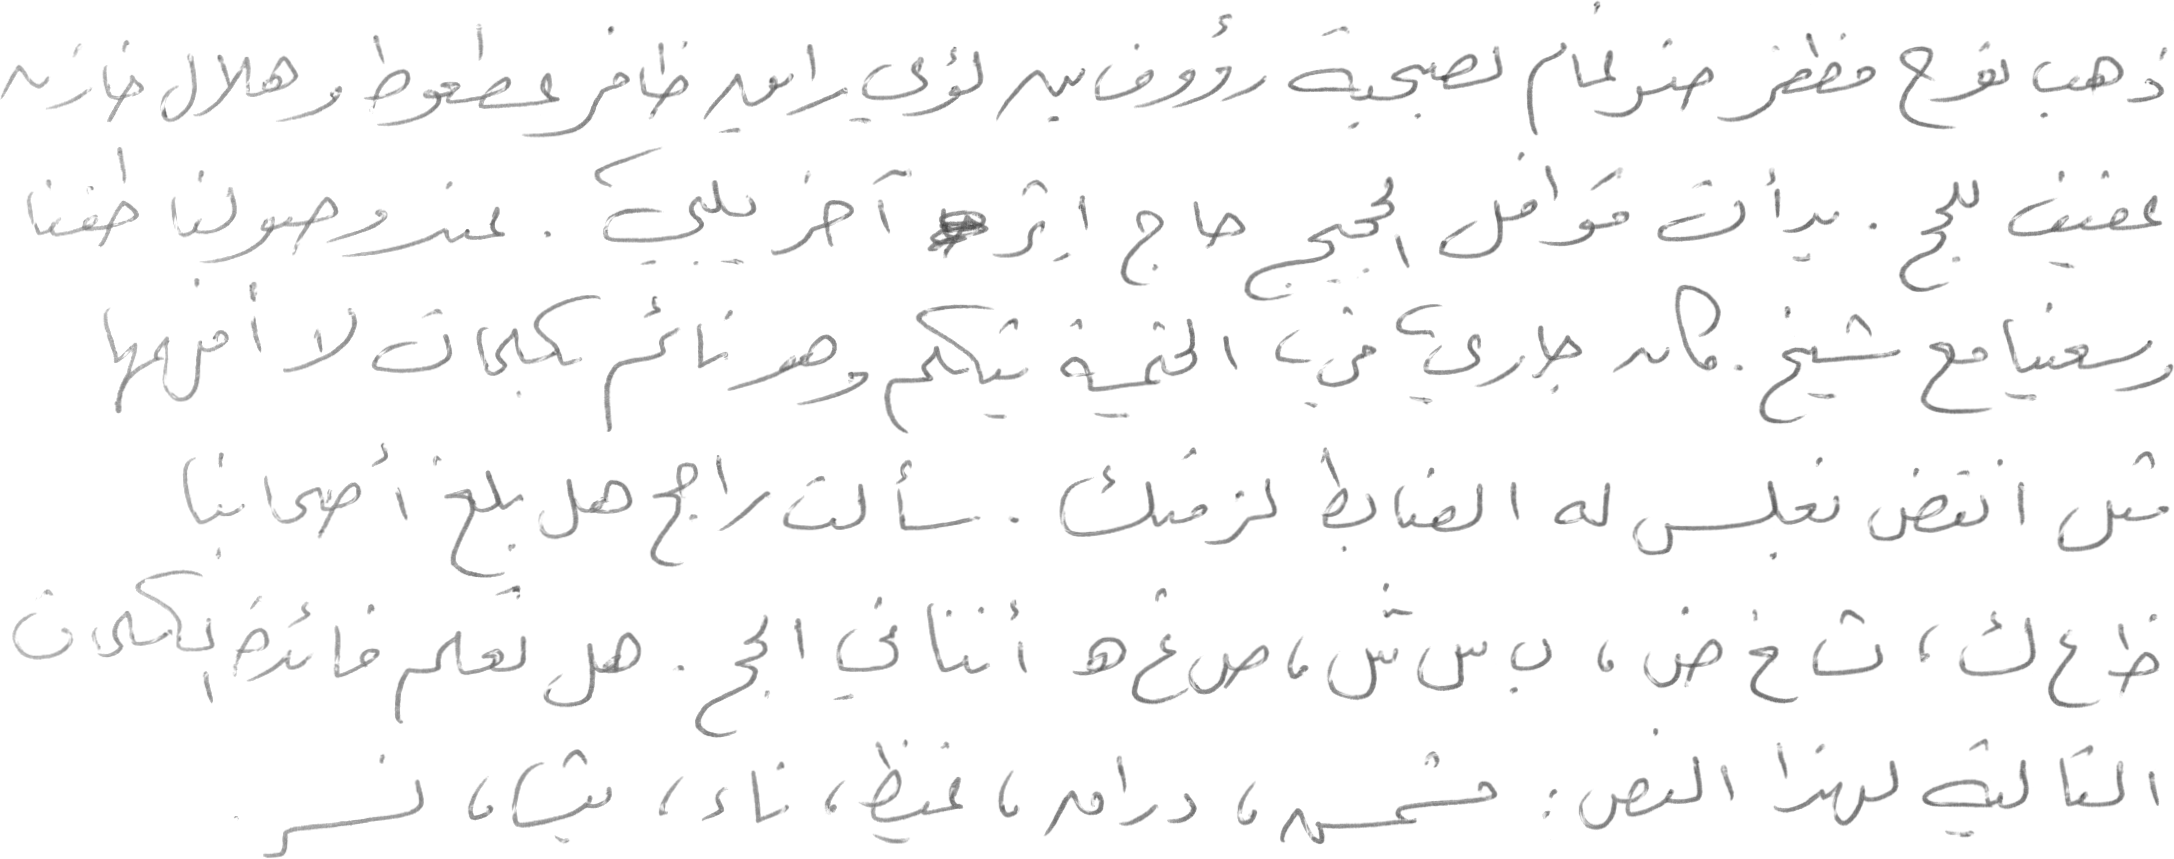 ذهب نوح مظفر ضرغام لصحبة رؤوف بن لؤي راين ظافر عطعوط وهلال خازن
عفيف للحج . بدأت قوافل الحجيج حاج إثر آخر يلبي . عند وصولنا طفنا
وسعينا مع شيخ . كان جاري في الخيمة يتكلم وهو نائم بكلمات لا أفهمها
مثل انتفض نغلس له الضابط لزمنك . سألت راجح هل بلغ أصحابنا
ظ ع ك ، ث خ ض ، ب س ش ، ص غ هـ أننا في الحج . هل تعلم فائدة الكلمات
التالية لهذا النص : مشمس ، دران ، غيظ ، ناء ، بث ، نسر